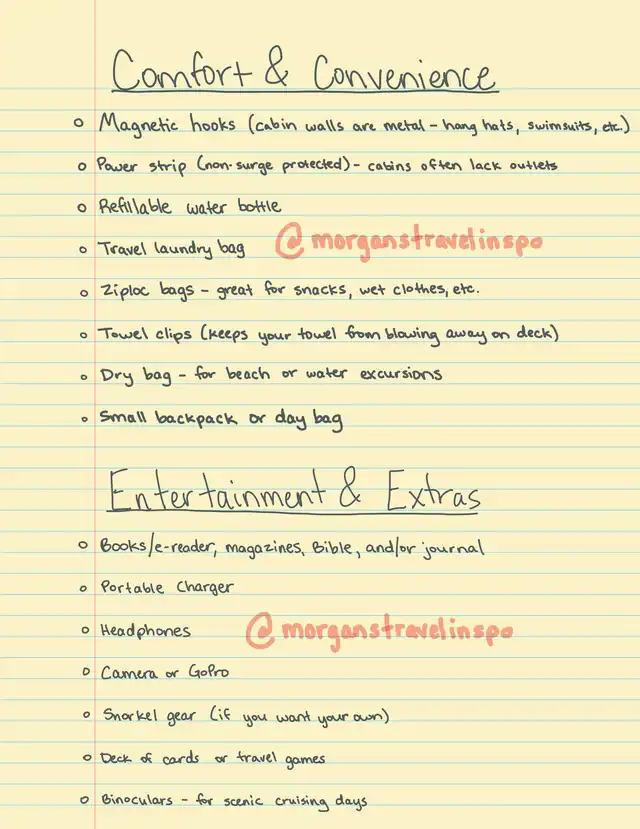 Comfort & Convenience
Magnetic hooks (cabin walls are metal - hang hats, swimsuits, etc.)
Power strip (non-surge protected) - cabins often lack outlets
Refillable water bottle
Travel laundry bag @morganstravelinspo
Ziploc bags - great for snacks, wet clothes, etc.
Towel clips (keeps your towel from blowing away on deck)
Dry bag - for beach or water excursions
Small backpack or day bag
Entertainment & Extras
Books/e-reader, magazines, Bible, and/or journal
Portable Charger
Headphones @morganstravelinspo
Camera or GoPro
Snorkel gear (if you want your own)
Deck of cards or travel games
Binoculars - for scenic cruising days